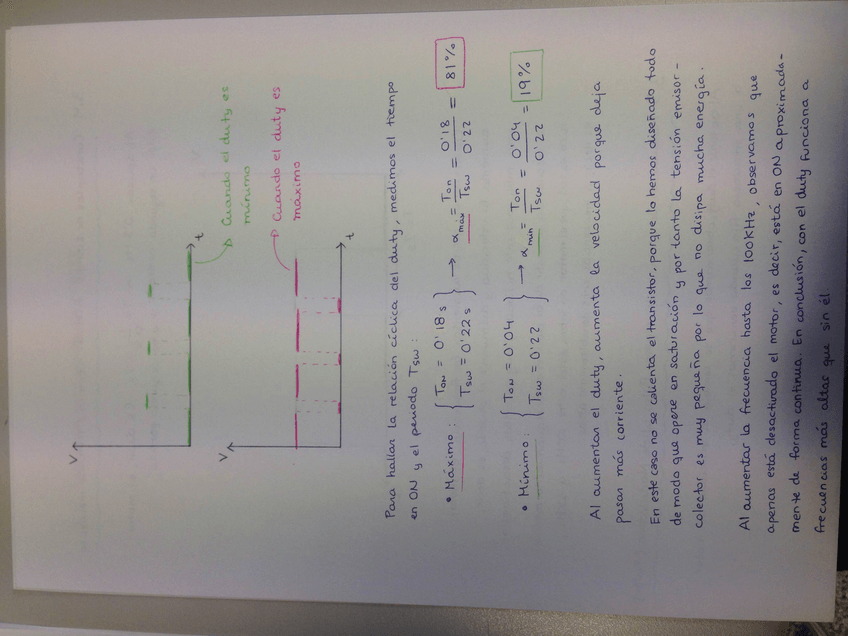 V
t
Cuando el duty es
mínimo
V
t
Cuando el duty es
máximo
Para hallar la relación cíclica del duty, medimos el tiempo
en ON y el periodo Tsw:
• Máximo: { TON = 0'18 s
TSW = 0'22 s } → αmáx = Ton/Tsw = 0'18/0'22 = 81%
• Mínimo: { TON = 0'04
TSW = 0'22 } → αmin = Ton/Tsw = 0'04/0'22 = 19%
Al aumentar el duty, aumenta la velocidad porque deja
pasar más corriente.
En este caso no se calienta el transistor, porque lo hemos diseñado todo
de modo que opere en saturación y por tanto la tensión emisor-
colector es muy pequeña por lo que no disipa mucha energía.
Al aumentar la frecuencia hasta los 100KHz, observamos que
apenas está desactivado el motor, es decir, está en ON aproximada-
mente de forma continua. En conclusión, con el duty funciona a
frecuencias más altas que sin él